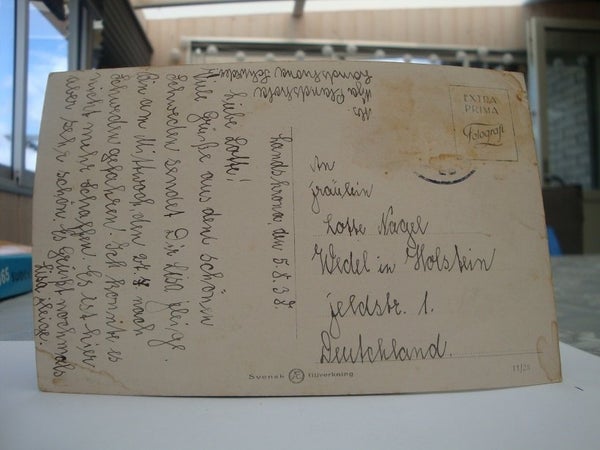 Landskrona, den 5.8.38.
Liebe Lotte!
Viele Grüße aus dem schönen
Schweden sendet Dir Lisa Pleige.
Bin am Mittwoch den 27.7 nach
Schweden gefahren. Ich konnte es
nicht mehr schaffen. Es ist hier
aber sehr schön. Es grüßt nochmals
Lisa Pleige.
Landskrona
EXTRA
PRIMA
Fotografi
An
Fräulein
Lotte Nagel
Wedel in Holstein
Feldstr. 1.
Deutschland.
Svensk
tillverkning
11/28